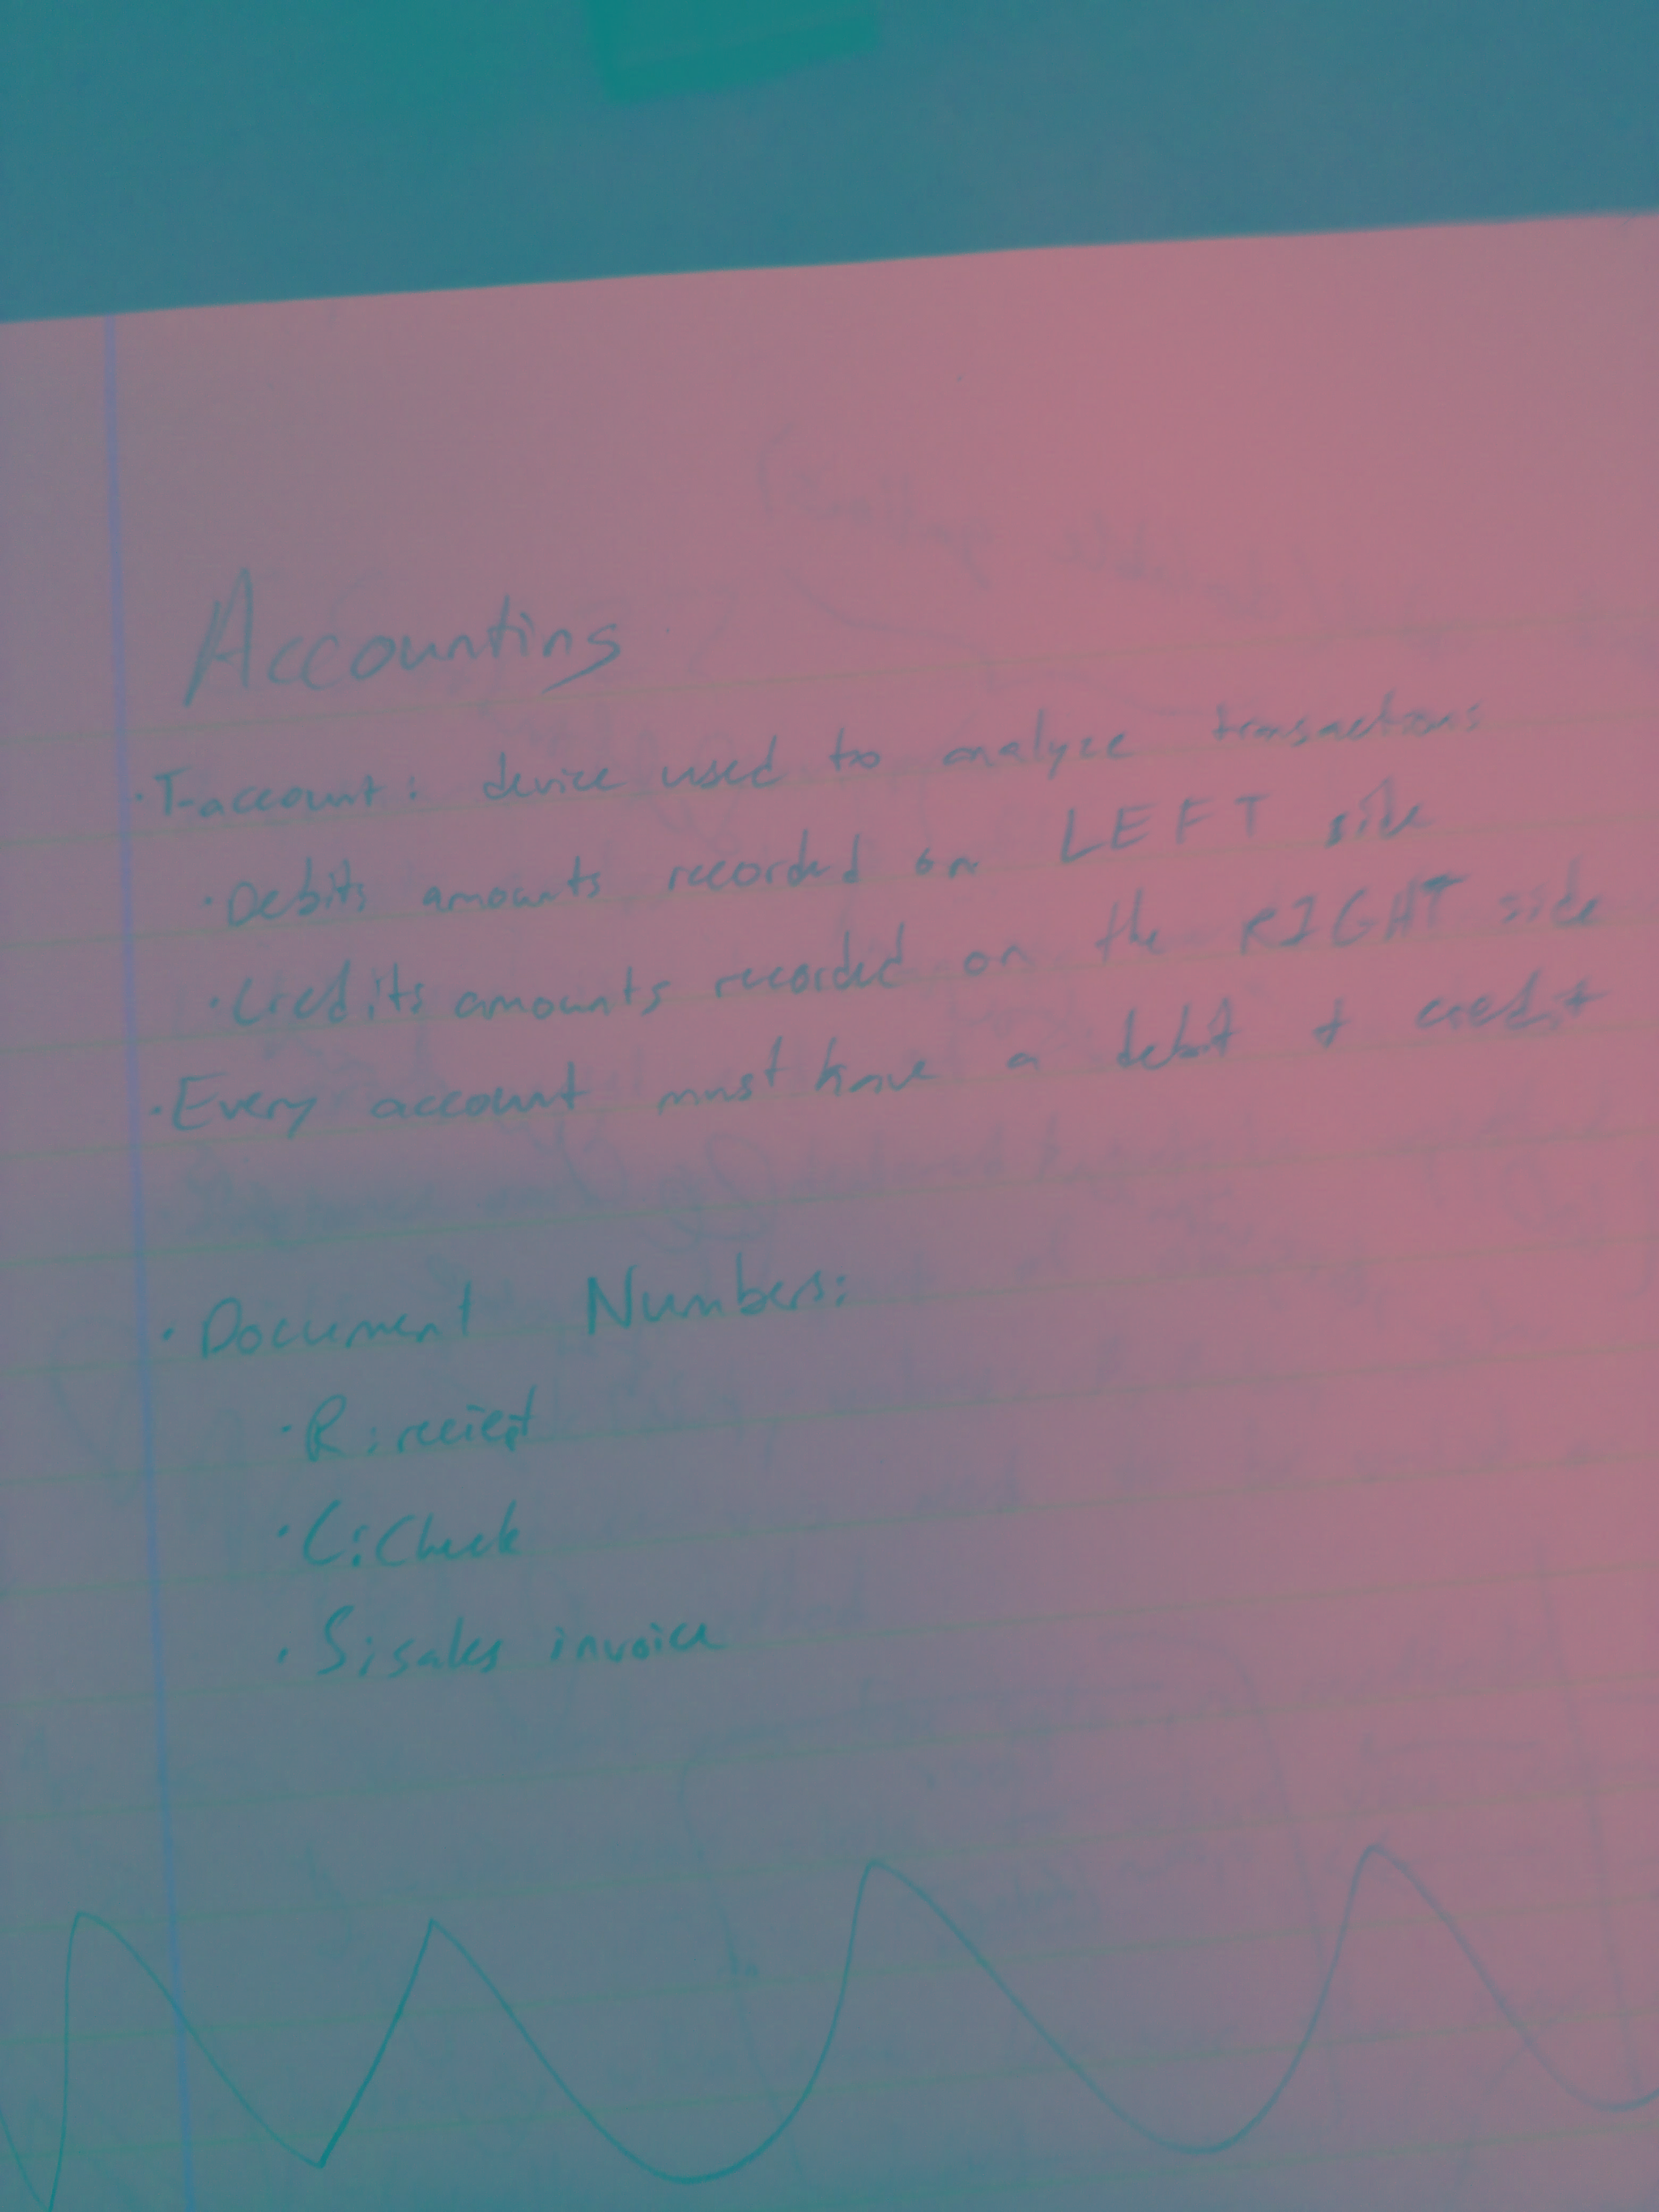 Accounting
· T-account: device used to analyze transactions
· Debits amounts recorded on LEFT side
· Credits amounts recorded on the RIGHT side
· Every account must have a debit & credit
· Document Numbers:
· R: reciept
· C: Check
· S: sales invoice